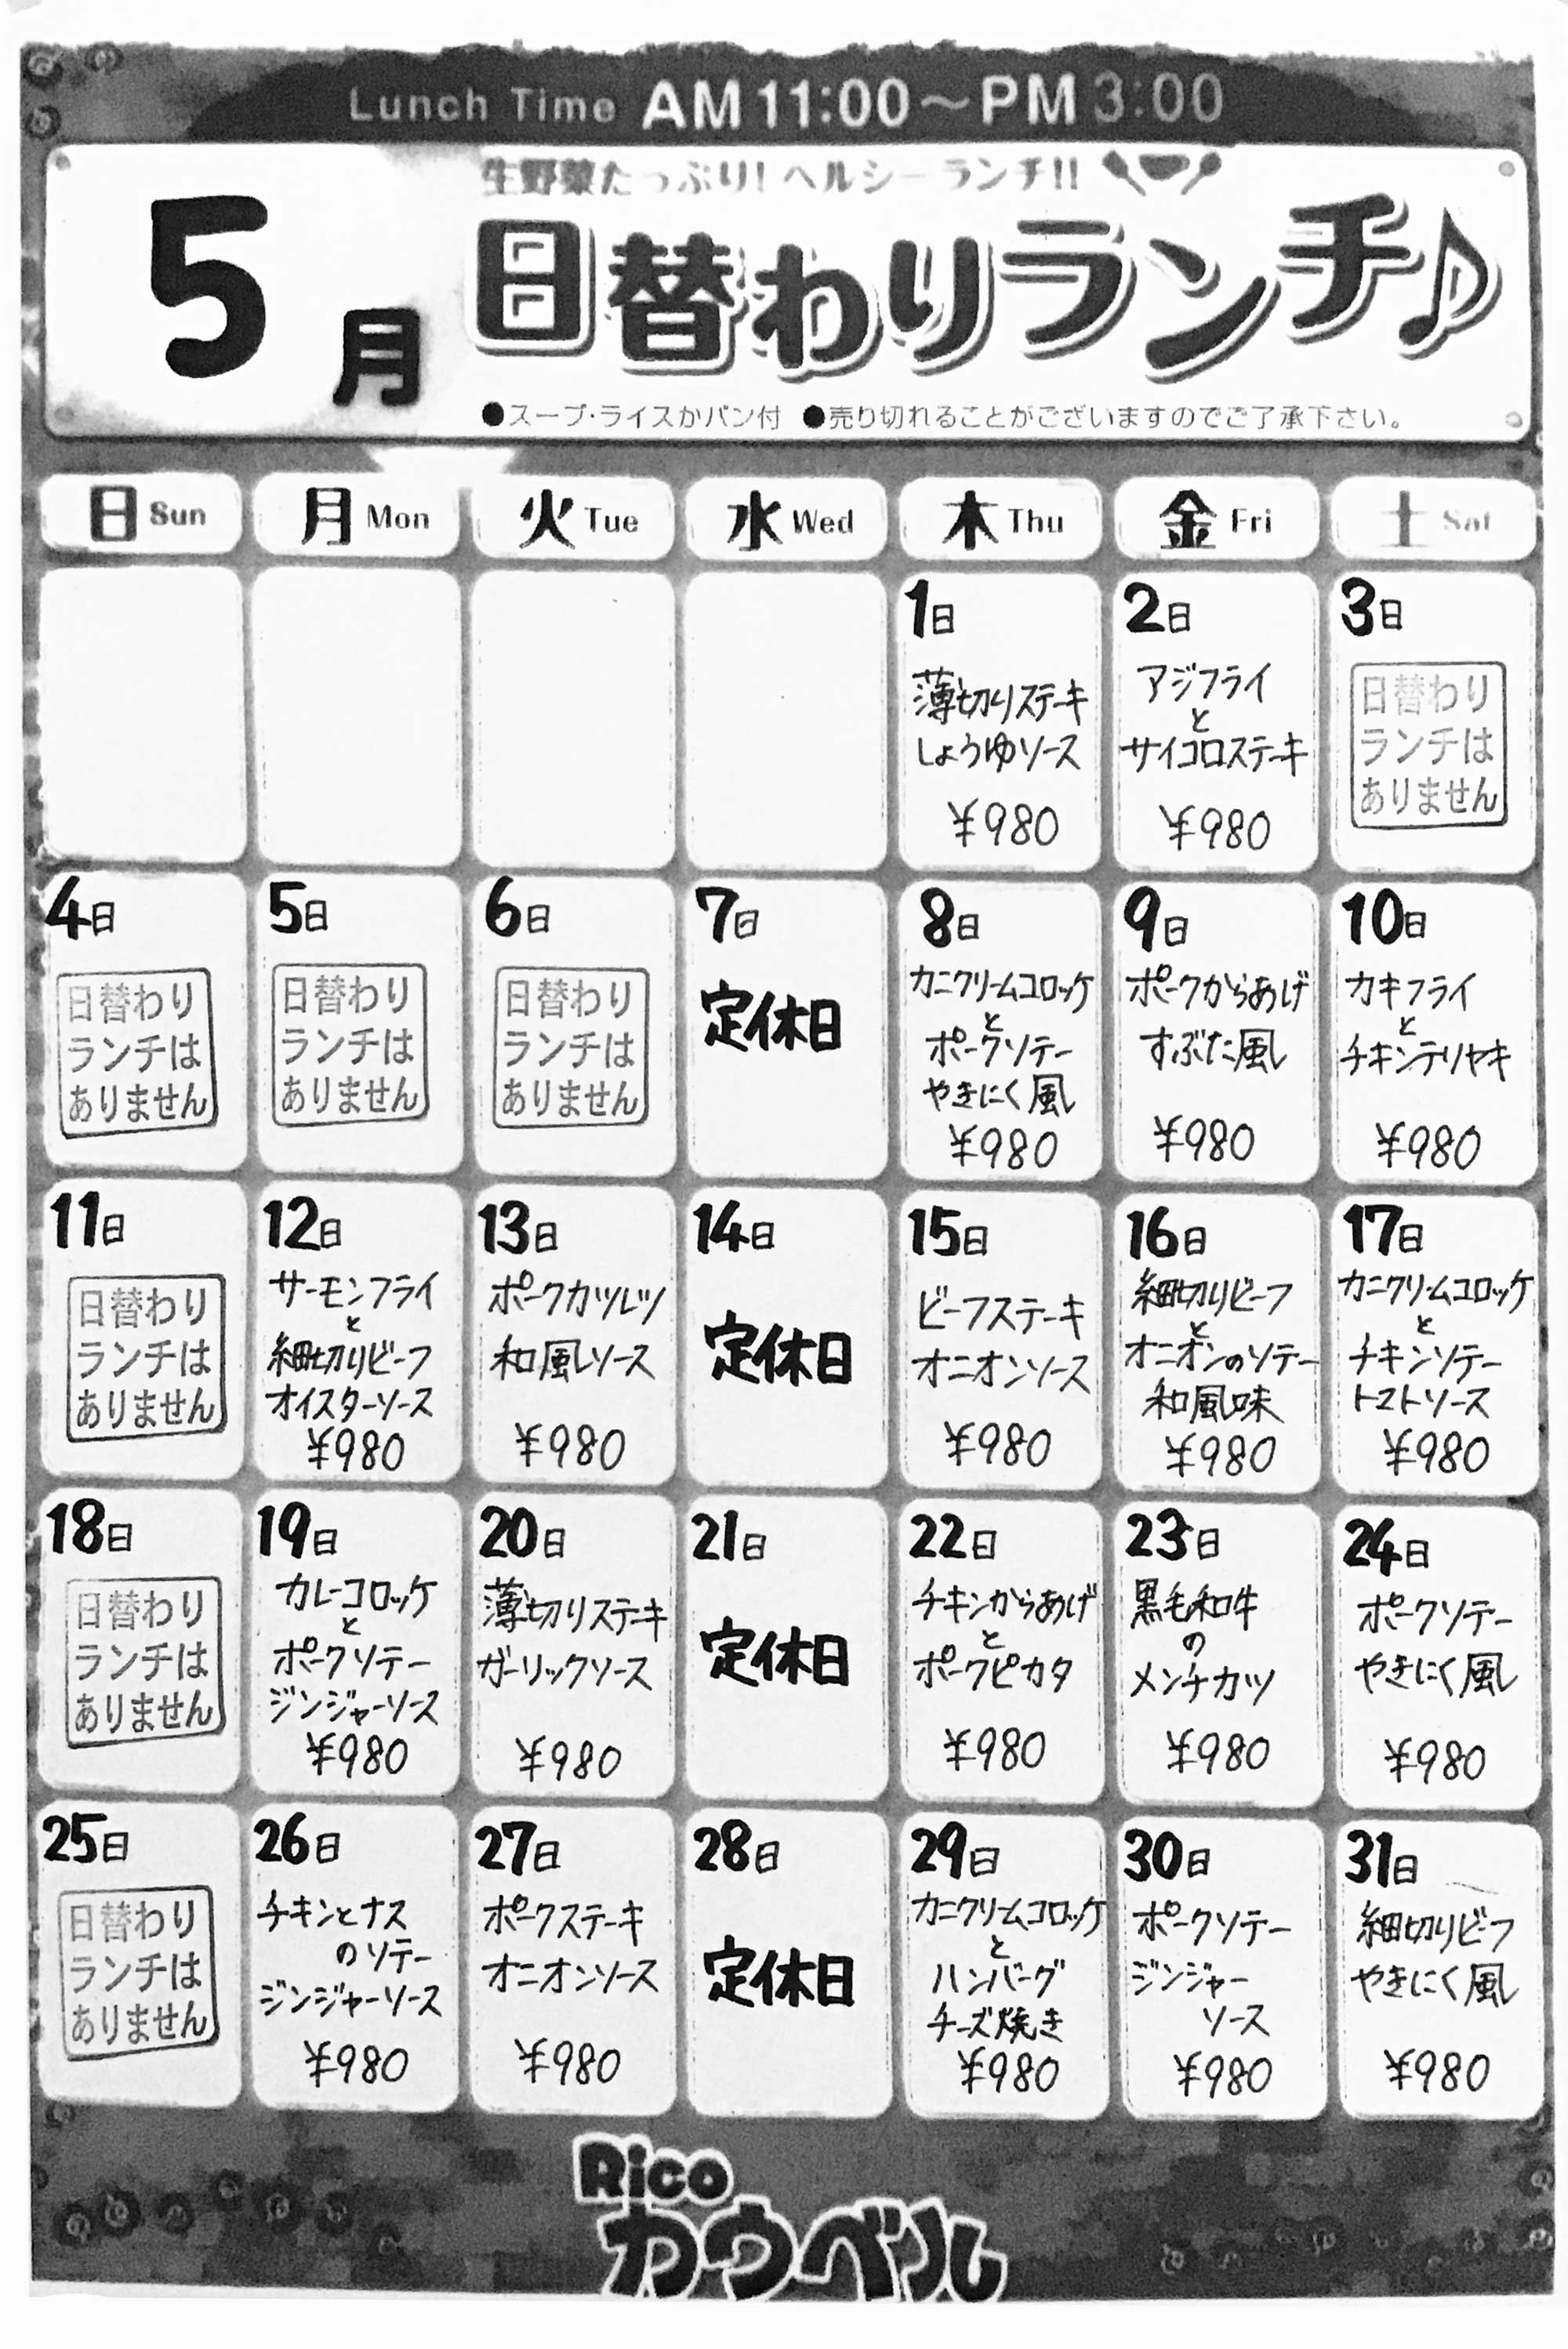 Lunch Time AM 11:00～PM 3:00
生野菜たっぷり！ヘルシーランチ!!
5月
日替わりランチ♪
●スープ・ライスかパン付 ●売り切れることがございますのでご了承下さい。
日 Sun 月 Mon 火 Tue 水 Wed 木 Thu 金 Fri 土 Sat
1日
薄切りステーキ
しょうゆソース
¥980
2日
アジフライ
と
サイコロステーキ
¥980
3日
日替わり
ランチは
ありません
4日
日替わり
ランチは
ありません
5日
日替わり
ランチは
ありません
6日
日替わり
ランチは
ありません
7日
定休日
8日
カニクリームコロッケ
と
ポークソテー
やきにく風
¥980
9日
ポークからあげ
すぶた風
¥980
10日
カキフライ
と
チキンテリヤキ
¥980
11日
日替わり
ランチは
ありません
12日
サーモンフライ
と
細切りビーフ
オイスターソース
¥980
13日
ポークカツレツ
和風ソース
¥980
14日
定休日
15日
ビーフステーキ
オニオンソース
¥980
16日
細切りビーフ
と
オニオンのソテー
和風味
¥980
17日
カニクリームコロッケ
と
チキンソテー
トマトソース
¥980
18日
日替わり
ランチは
ありません
19日
カレーコロッケ
と
ポークソテー
ジンジャーソース
¥980
20日
薄切りステーキ
ガーリックソース
¥980
21日
定休日
22日
チキンからあげ
と
ポークピカタ
¥980
23日
黒毛和牛
の
メンチカツ
¥980
24日
ポークソテー
やきにく風
¥980
25日
日替わり
ランチは
ありません
26日
チキンとナス
のソテー
ジンジャーソース
¥980
27日
ポークステーキ
オニオンソース
¥980
28日
定休日
29日
カニクリームコロッケ
と
ハンバーグ
チーズ焼き
¥980
30日
ポークソテー
ジンジャー
ソース
¥980
31日
細切りビーフ
やきにく風
¥980
Rico
カウベル